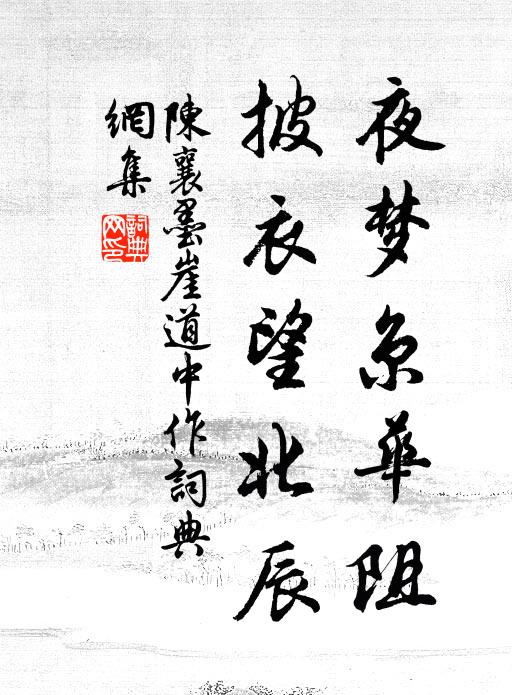 夜梦京華阻
披衣望北辰
陳襄墨崖道中作詞典
網集
詞典网印